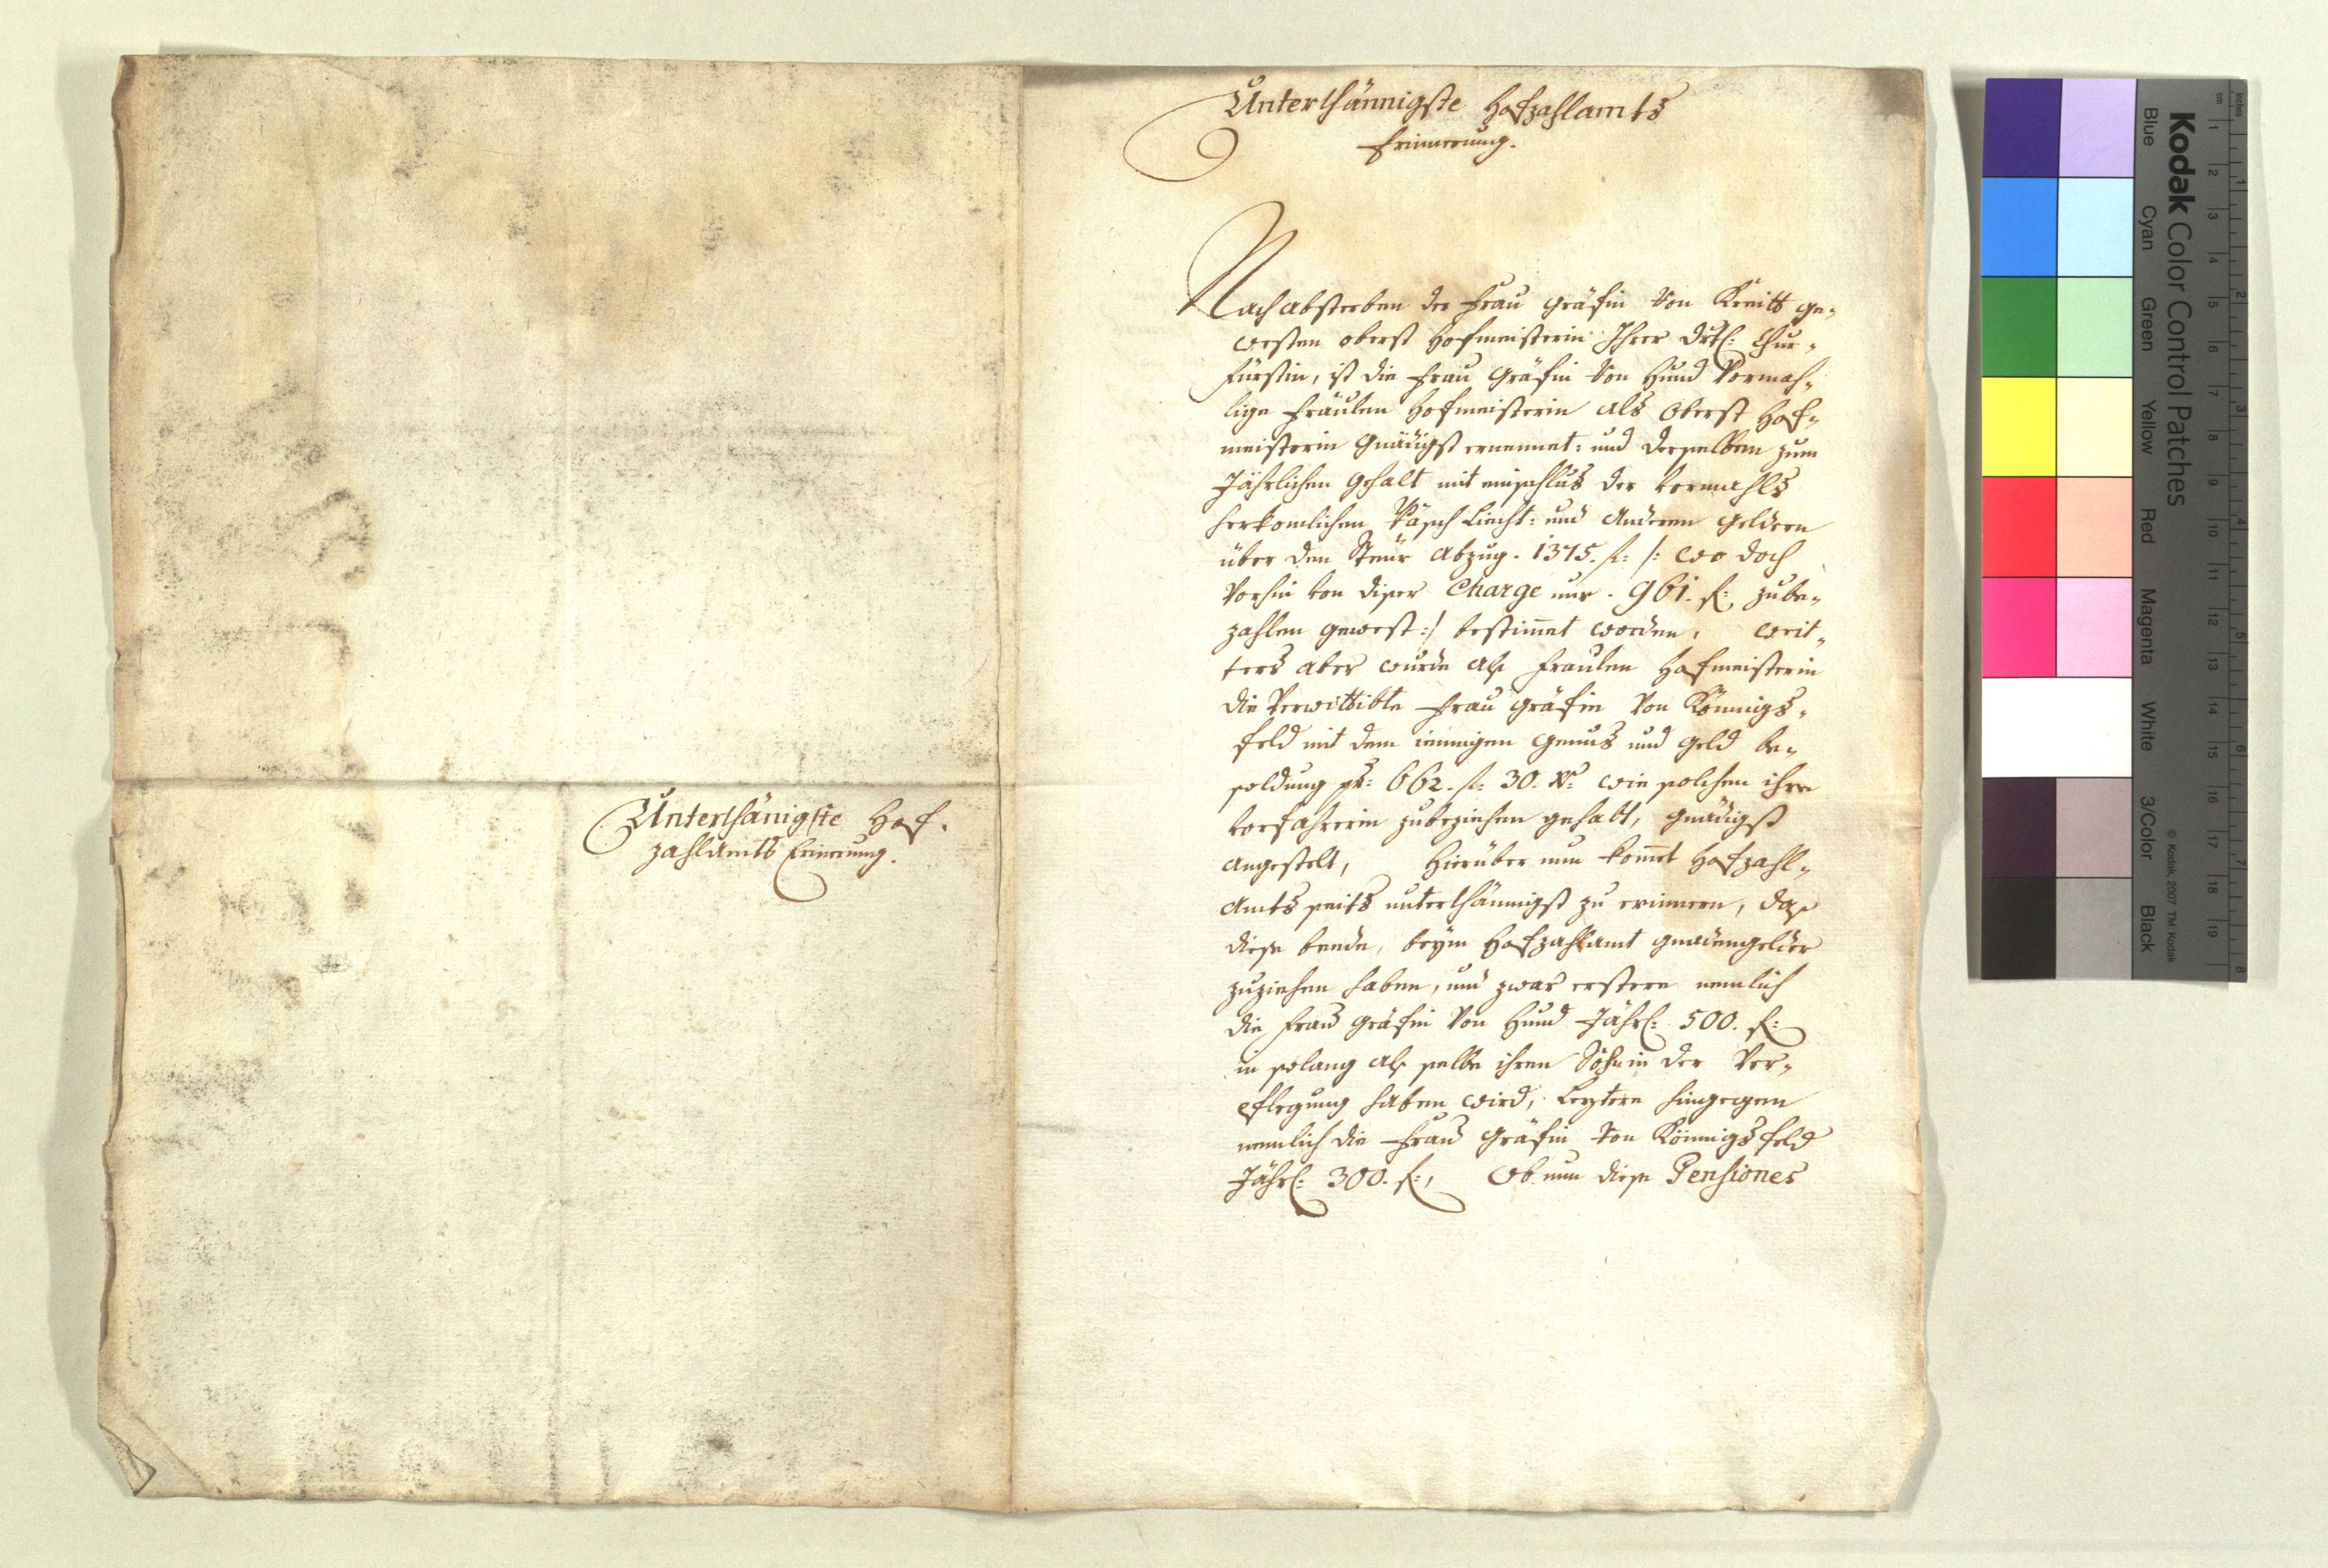 Unterthänigste Hof-
zahlamts Erinerung.
Unterthännigste Hofzahlamts
Erinnerung.
Nach absterben der Frau Gräfin von Kreitt ge-
westen oberst Hofmeisterin Ihrer Drtl: Chur-
fürstin, ist die Frau Gräfin von Hund vormah-
lige Fräulen Hofmeisterin als Oberst Hof-
meisterin Gnädigst ernennet: und derselben zum
Jährlichen Gehalt mit einschlus der vormahls
herkomlichen Wäsch Liecht: und anderen Geldern
über den Steur abzug. 1375. f: /: wo doch
vorhin von diser Charge nur. 961. f: zube-
zahlen gewest :/ bestimet worden, weit-
ters aber wurde als Fraulen Hofmeisterin
die verwittibte Frau Gräfin von Könnigs-
feld mit dem iennigen Genus und Geld be-
soldung pr: 662. f: 30. kr: wie solchen ihre
vorfahrerin zubeziehen gehabt, gnädigst
angestelt, Hierüber nun komet Hofzahl-
Amts seits unterthännigst zu erinnern, das
diese beede, beym Hofzahlamt gnadengelder
zuziehen haben, und zwar erstere nemlich
die Frau Gräfin von Hund Jährl: 500. f:
in solang als selbe ihren Sohn in der Ver-
pflegung haben wird, Leztere hingegen
nemlich die Frau Gräfin von Könnigsfeld
Jährl: 300. f:, Ob nun diese Pensiones
Kodak Color Control Patches
Blue Cyan Green Yellow Red Magenta White 3/Color Black
© Kodak, 2007 TM: Kodak
inches 1 2 3 4 5 6 7 8
cm 1 2 3 4 5 6 7 8 9 10 11 12 13 14 15 16 17 18 19